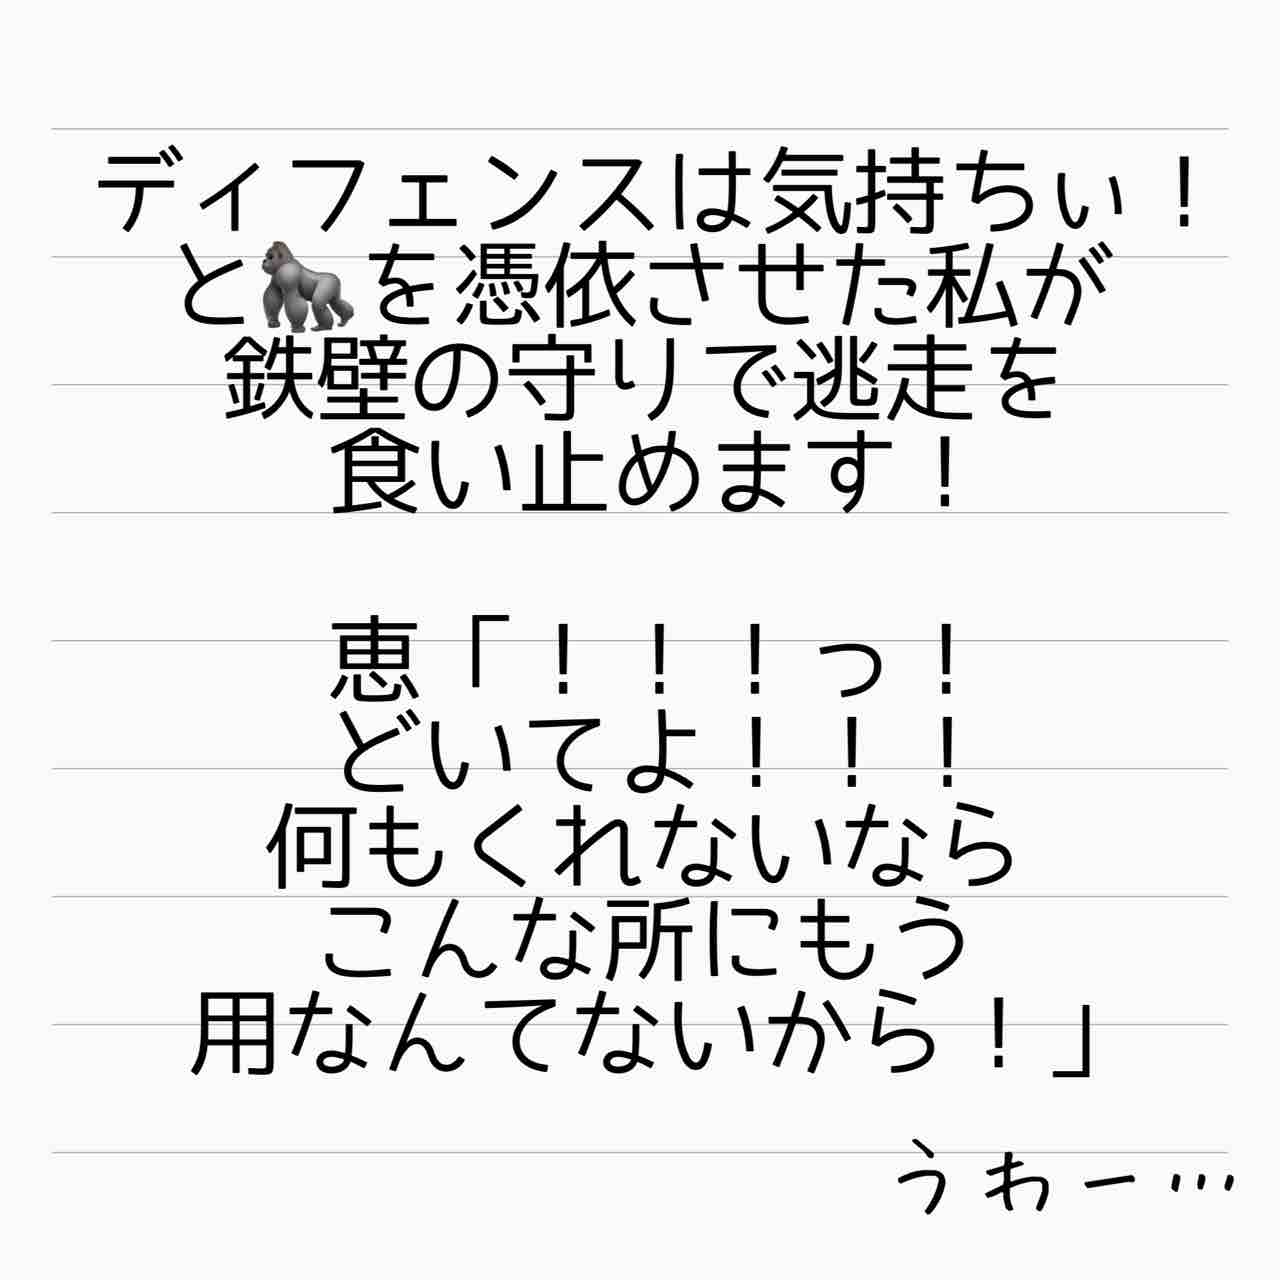 ディフェンスは気持ちぃ！
と🦍を憑依させた私が
鉄壁の守りで逃走を
食い止めます！
恵「！！！っ！
どいてよ！！！
何もくれないなら
こんな所にもう
用なんてないから！」
うわー…